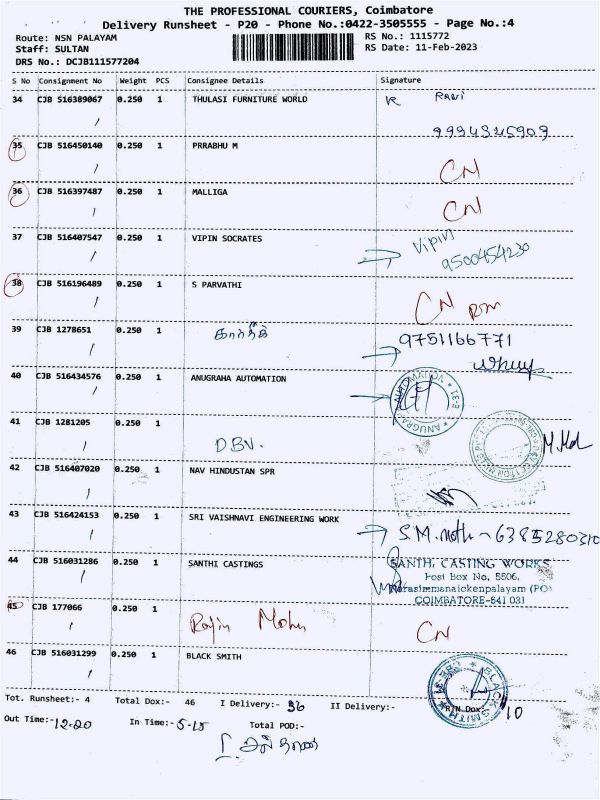 THE PROFESSIONAL COURIERS, Coimbatore
Delivery Runsheet - P20 - Phone No.:0422-3505555 - Page No.:4
Route: NSN PALAYAM
RS No.: 1115772
Staff: SULTAN
RS Date: 11-Feb-2023
DRS No.: DCJB111577204
S No Consignment No Weight PCS Consignee Details Signature
34 CJB 516389067 0.250 1 THULASI FURNITURE WORLD R Ravi
/ 9994345909
35 CJB 516450140 0.250 1 PRRABHU M
/ CN
36 CJB 516397487 0.250 1 MALLIGA
/ CN
37 CJB 516407547 0.250 1 VIPIN SOCRATES Vipin
/ 9500454230
38 CJB 516196489 0.250 1 S PARVATHI
/ CN
39 CJB 1278651 0.250 1 கார்த்திக் 9751166771
/
40 CJB 516434576 0.250 1 ANUGRAHA AUTOMATION
/
41 CJB 1281205 0.250 1
/ DBV.
42 CJB 516407020 0.250 1 NAV HINDUSTAN SPR
/
43 CJB 516424153 0.250 1 SRI VAISHNAVI ENGINEERING WORK
/ 6385280310
44 CJB 516031286 0.250 1 SANTHI CASTINGS SANTHI CASTING WORKS
/ Post Box No, 5506,
Narasimmanaickenpalayam (PO)
COIMBATORE-641 031
45 CJB 177066 0.250 1
/ CN
46 CJB 516031299 0.250 1 BLACK SMITH
/ BLACK SMITH
Tot. Runsheet:- 4 Total Dox:- 46 I Delivery:- 36 II Delivery:- RTN Dox:- 10
Out Time:- 12-20 In Time:- 5-15 Total POD:-